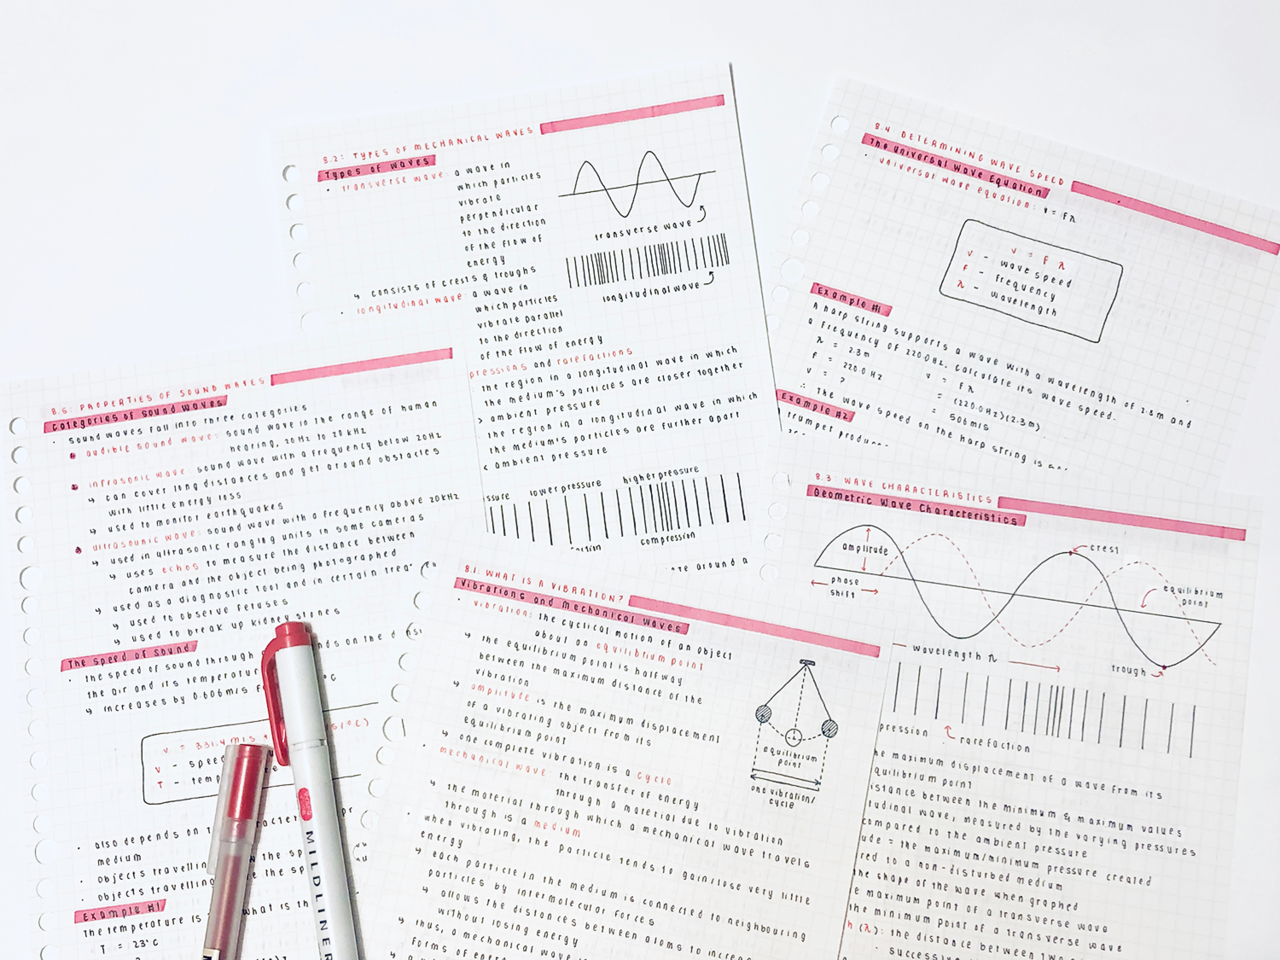 8.2: TYPES OF MECHANICAL WAVES
Types of waves
· transverse wave: a wave in
which particles
vibrate
perpendicular
to the direction
of the flow of
energy
↳ consists of crests & troughs
· longitudinal wave: a wave in
which particles
vibrate parallel
to the direction
of the flow of energy
pressions and rarefactions
the region in a longitudinal wave in which
the medium's particles are closer together
> ambient pressure
the region in a longitudinal wave in which
the medium's particles are further apart
< ambient pressure
transverse wave
longitudinal wave
ssure lower pressure higher pressure
compression
around a
8.4: DETERMINING WAVE SPEED
The Universal Wave Equation
· universal wave equation: v = fλ
v = f λ
v - wave speed
f - frequency
λ - wavelength
Example #1
A harp string supports a wave with a wavelength of 2.3m and
a frequency of 220.0Hz. Calculate its wave speed.
λ = 2.3m
f = 220.0 Hz
v = ?
v = fλ
= (220.0Hz)(2.3m)
= 506m/s
∴ The wave speed on the harp string is
Example #2
trumpet produc
8.6: PROPERTIES OF SOUND WAVES
Categories of Sound Waves
· sound waves fall into three categories
audible sound wave: sound wave in the range of human
hearing, 20Hz to 20kHz
infrasonic wave: sound wave with a frequency below 20Hz
↳ can cover long distances and get around obstacles
with little energy loss
↳ used to monitor earthquakes
ultrasonic wave: sound wave with a frequency above 20kHz
↳ used in ultrasonic ranging units in some cameras
↳ uses echos to measure the distance between
camera and the object being photographed
↳ used as a diagnostic tool and in certain trea
↳ used to observe fetuses
↳ used to break up kidney stones
The Speed of Sound
· the speed of sound through
the air and its temperature
↳ increases by 0.606m/s f
v = 331.4 m/s +
v - speed
T - temp
· also depends on
medium
· objects travelling
· objects travelling
Example #1
The temperature is what is th
T = 23°C
MILDLINER
8.1: WHAT IS A VIBRATION?
Vibrations and Mechanical Waves
· vibration: the cyclical motion of an object
about an equilibrium point
↳ the equilibrium point is halfway
between the maximum distance of the
vibration
↳ amplitude is the maximum displacement
of a vibrating object from its
equilibrium point
↳ one complete vibration is a cycle
· mechanical wave: the transfer of energy
through a material due to vibration
↳ the material through which a mechanical wave travels
through is a medium
· when vibrating, the particle tends to gain/lose very little
energy
↳ each particle in the medium is connected to neighbouring
particles by intermolecular forces
↳ allows the distances between atoms to increa
without losing energy
↳ thus, a mechanical wave
forms of ener
equilibrium
point
one vibration/
cycle
8.3: WAVE CHARACTERISTICS
Geometric Wave Characteristics
amplitude
phase
shift
crest
equilibrium
point
wavelength λ
trough
pression
rarefaction
he maximum displacement of a wave from its
quilibrium point
istance between the minimum & maximum values
tudinal wave; measured by the varying pressures
compared to the ambient pressure
ude = the maximum/minimum pressure created
red to a non-disturbed medium
the shape of the wave when graphed
e maximum point of a transverse wave
the minimum point of a transverse wave
h (λ): the distance between two
successive